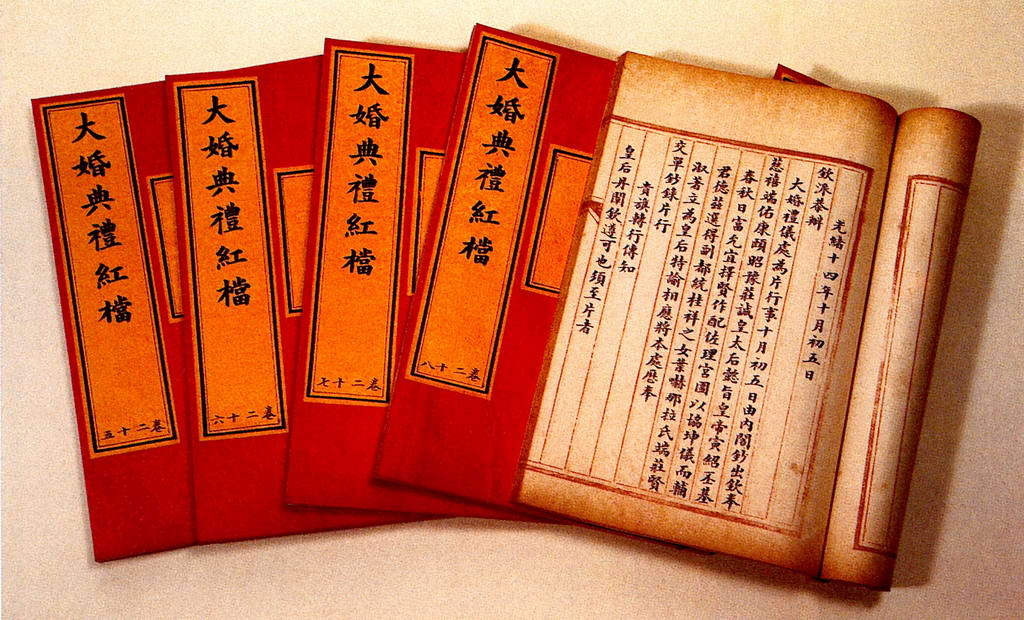 光緒十四年十月初五日
欽派恭辦
大婚禮儀處為片行事十月初五日由內閣鈔出欽奉
慈禧端佑康頤昭豫莊誠皇太后懿旨皇帝寅紹丕基
春秋日富允宜擇賢作配佐理宮闈以協坤儀而輔
君德茲選得副都統桂祥之女葉嚇那拉氏端莊賢
淑著立為皇后特諭相應將本處應奉
交單鈔錄片行
貴旗轉行傳知
皇后丹闡欽遵可也須至片者
大婚典禮紅檔
卷二十八
大婚典禮紅檔
卷二十七
大婚典禮紅檔
卷二十六
大婚典禮紅檔
卷二十五